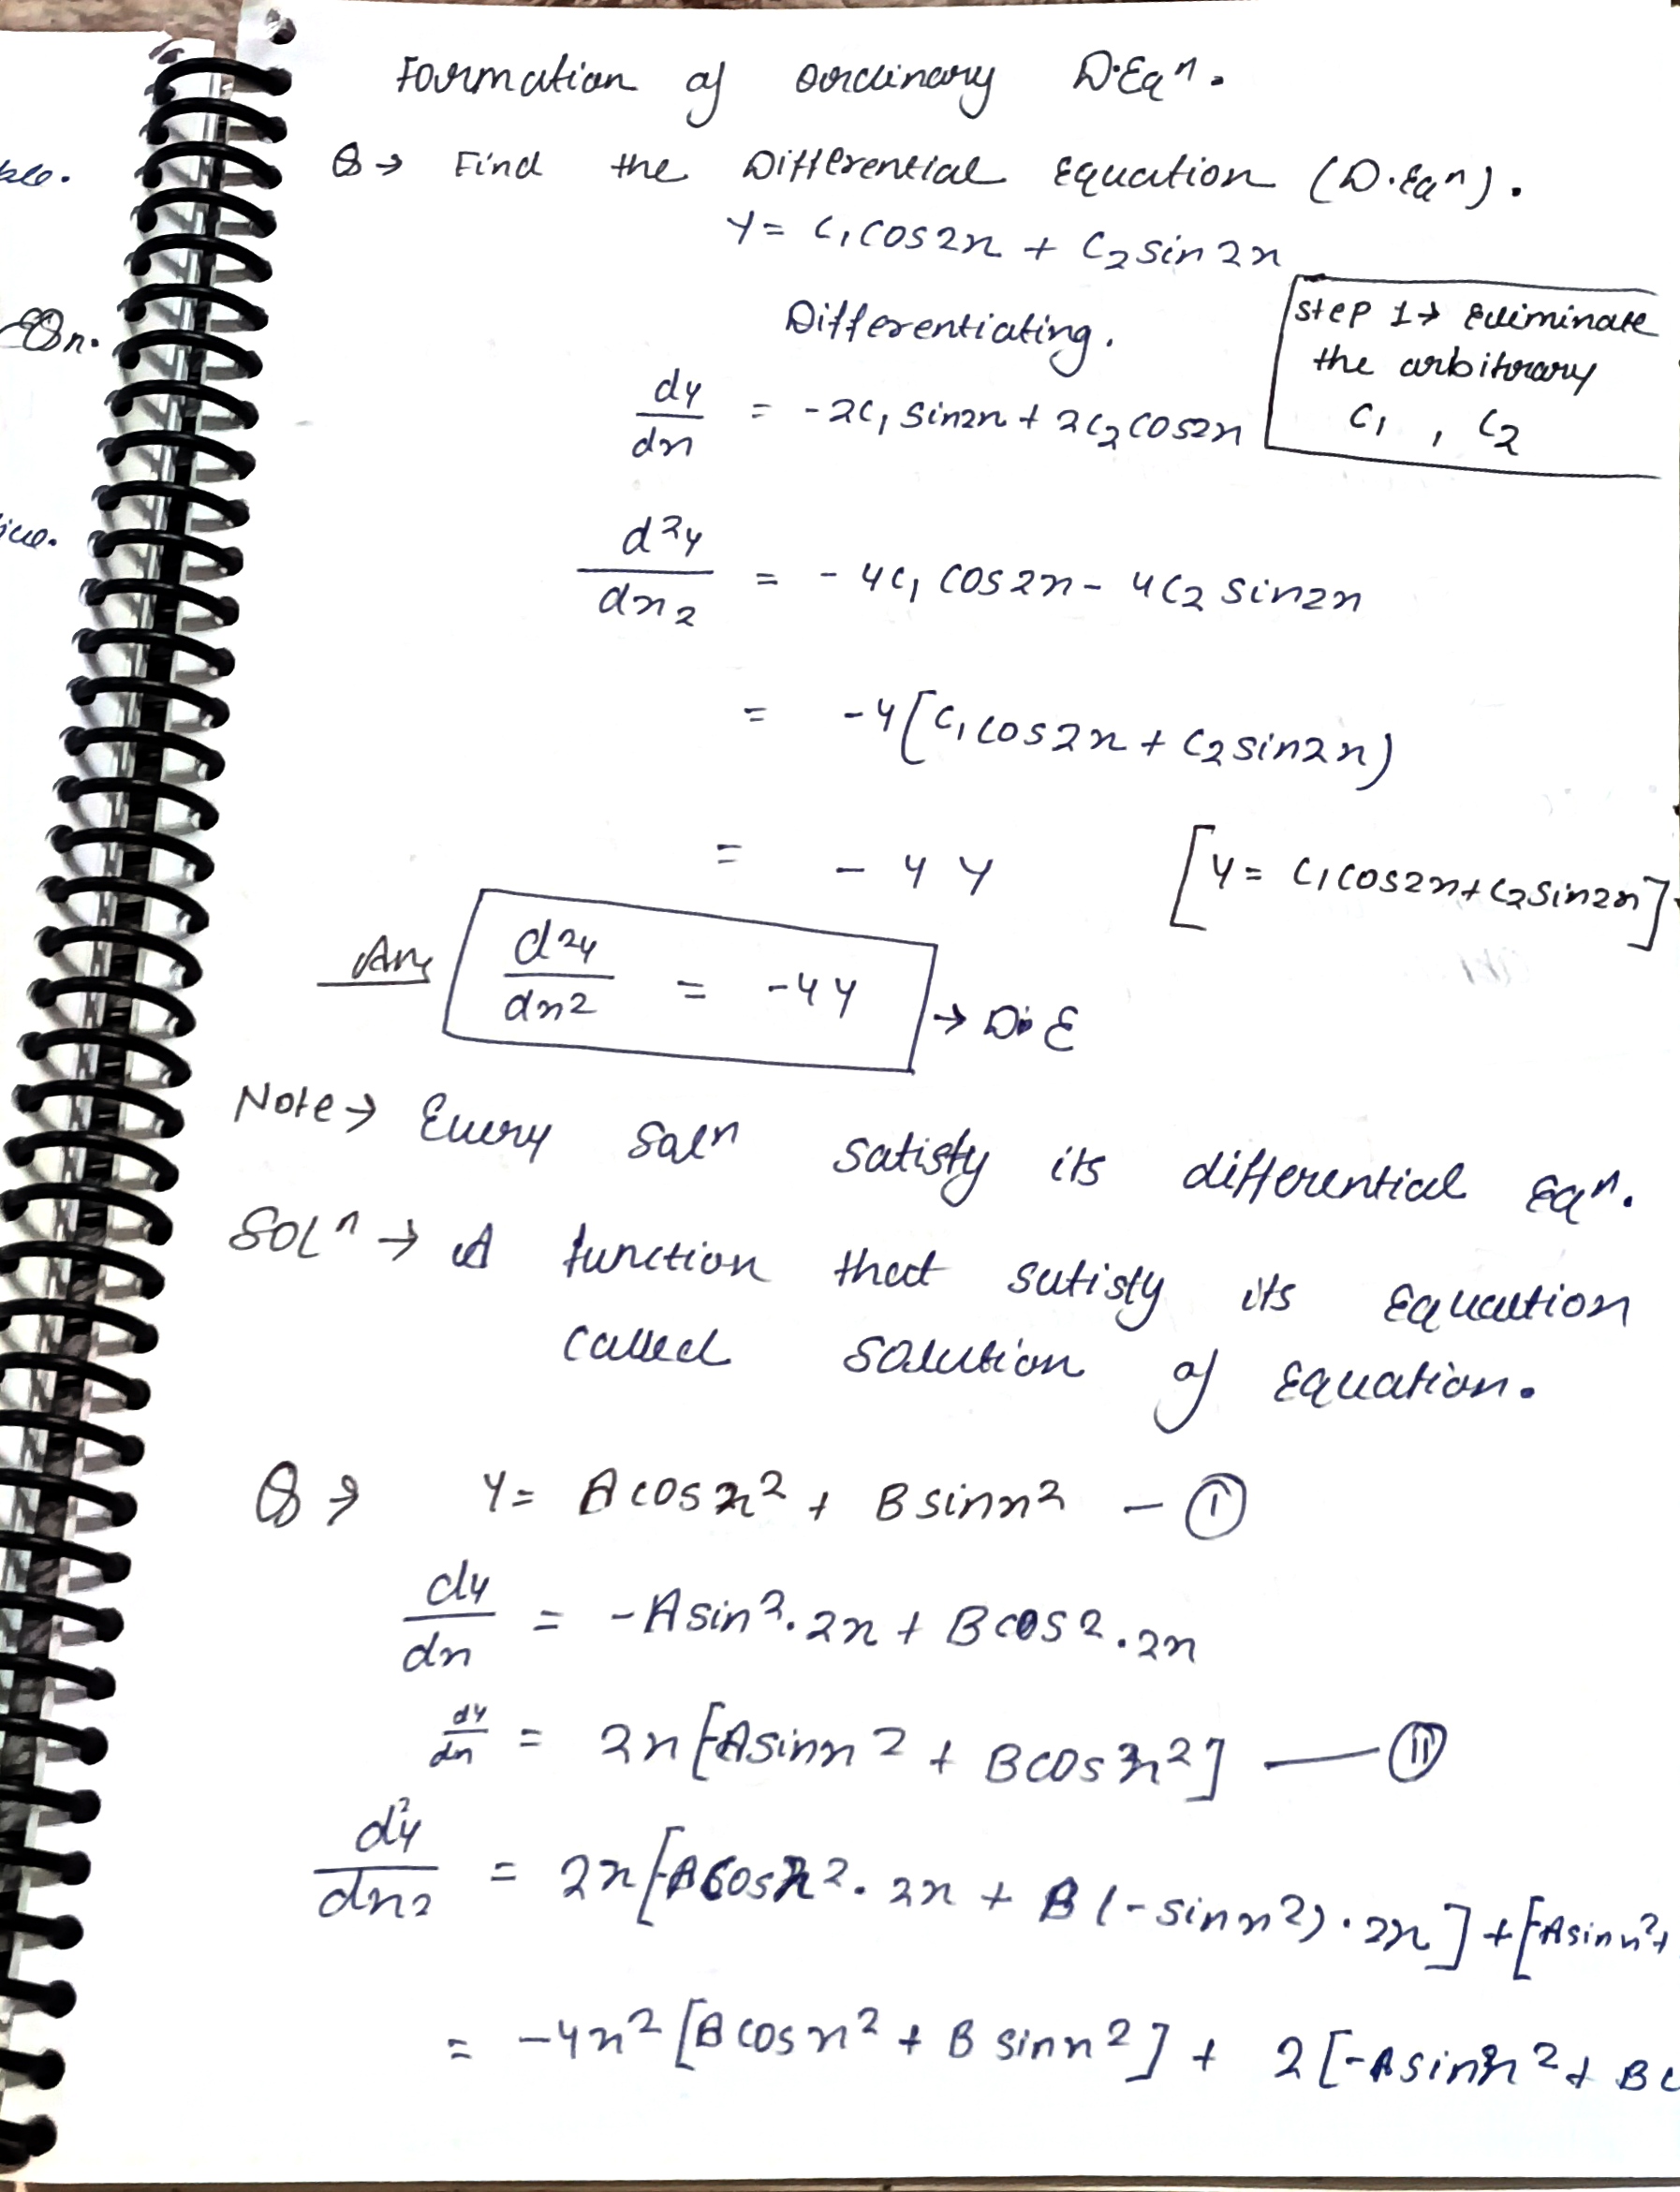 Formation of ordinary D.Eqn.
Q → Find the Differential Equation (D.Eqn).
y = C1 cos2x + C2 sin2x
Differentiating.
Step 1 → Eliminate
the arbitrary
C1 , C2
dy/dx = -2C1 sin2x + 2C2 cos2x
d2y/dx2 = - 4C1 cos2x - 4C2 sin2x
= -4[C1 cos2x + C2 sin2x)
= - 4y [y = C1 cos2x + C2 sin2x]
Ans d2y/dx2 = -4y → D.E
Note → Every Soln satisfy its differential Eqn.
SOLn → A function that satisfy its Equation
called solution of Equation.
Q → y = A cos x2 + B sin x2 - (I)
dy/dx = -A sin2. 2x + B cos2. 2x
dy/dx = 2x[-A sin x2 + B cos x2] — (II)
d2y/dx2 = 2x[-A cos x2. 2x + B(-sin x2). 2x] + [-A sin x2 +
= -4x2 [A cos x2 + B sin x2] + 2[-A sin x2 + B c
ble.
ive.